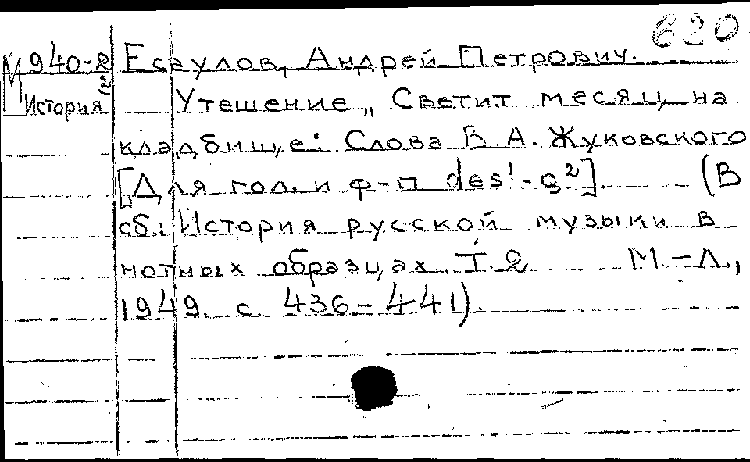 620
М 940-2 Есаулов, Андрей Петрович.
История Утешение „ Светит месяц на
кладбище: Слова В А. Жуковского
[Для гол. и ф-п des¹-g²]. (В
сб.: История русской музыки в
нотных образцах Т. 2 М-Л.,
1949. с. 436-441)